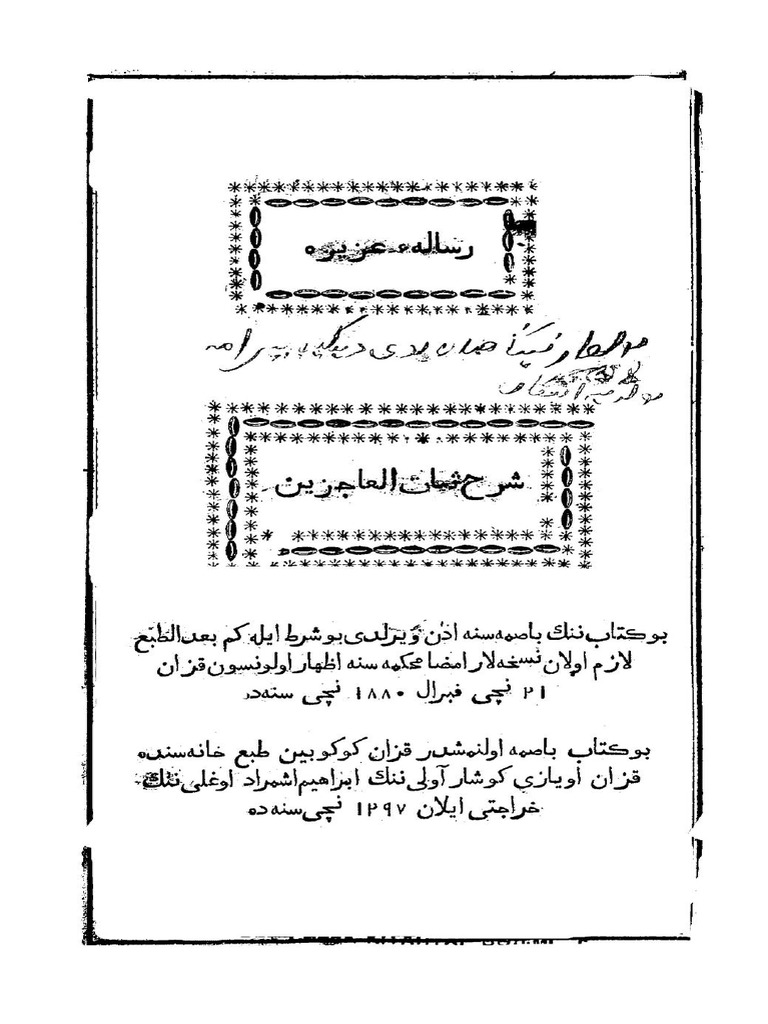 رساله‌ء عزيزه
شرح ثبات العاجزين
بو كتاب ننك باصمه سنه اذن ويرلدى بو شرط ايله كم بعد الطبع
لازم اولان نسخه لار امضا محكمه سنه اظهار اولونسون قزان
٢١ نچى فبرال ١٨٨٠ نچى سنه ده
بو كتاب باصمه اولنمشدر قزان كوكوبين طبع خانه سنده
قزان اويازي كوشار آولى ننك ابراهيم اشمراد اوغلى ننك
خراجتى ايلان ١٢٩٧ نچى سنه ده